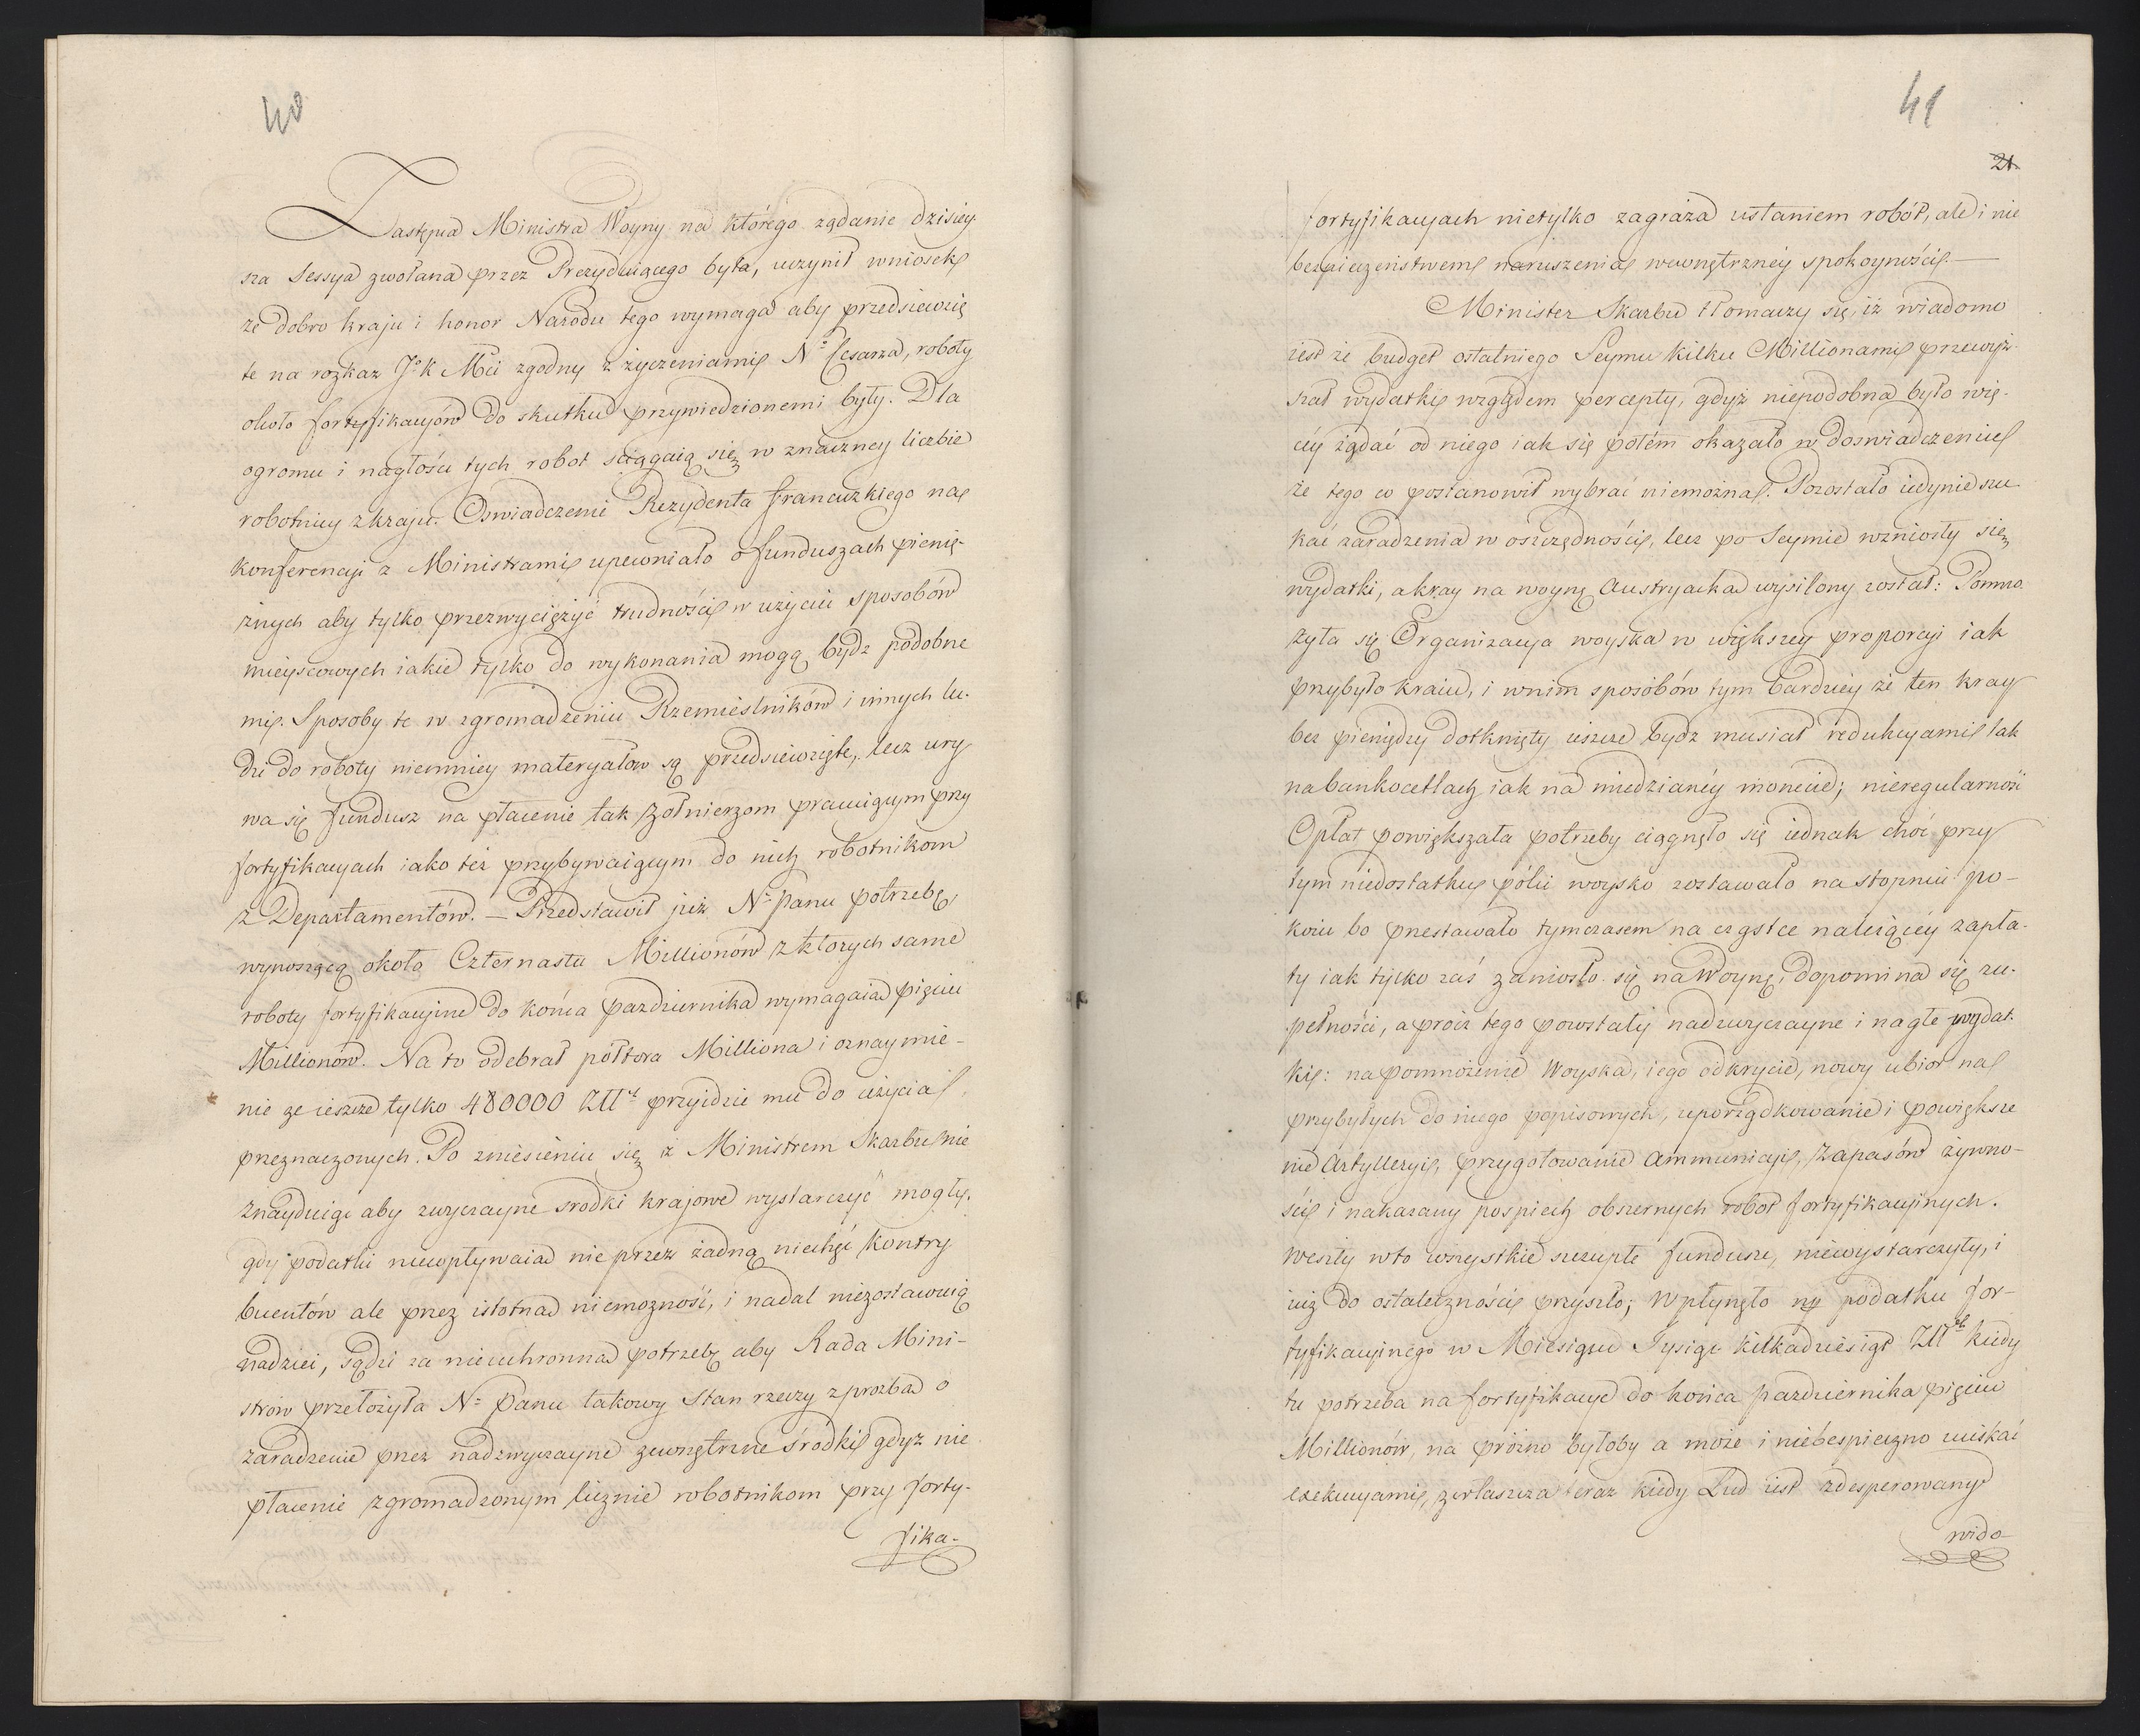 40
Zastępca Ministra Woyny na którego żądanie dzisiey-
sza Sessya zwołana przez Prezyduiącego była, uczynił wniosek
że dobro kraju i honor Narodu tego wymaga aby przedsiewzię
te na rozkaz J. K Mci zgodny z życzeniami N. Cesarza, roboty
około fortyfikacyów do skutku przywiedzionemi były. Dla
ogromu i nagłości tych robot sciągaią się w znaczney liczbie
robotnicy z kraju. Oswiadczenie Rezydenta francuzkiego na
konferencyi z Ministrami upewniało o funduszach pienię-
żnych aby tylko przezwyciężyć trudności w użyciu sposobów
mieyscowych iakie tylko do wykonania mogą bydz podobne
mi. Sposoby te w zgromadzeniu Rzemieslników i innych lu-
dzi do roboty niemniey materyałow są przedsiewzięte, lecz ury
wa się fundusz na płacenie tak żołnierzom pracuiącym przy
fortyfikacyach iako też przybywaiącym do nich robotnikom
z Departamentów. — Przedstawił już N. Panu potrzebę
wynoszącą około Czternastu Millionów z ktorych same
roboty fortyfikacyine do końca pazdziernika wymagaia pięciu
Millionów. Na to odebrał półtora Milliona i oznaymie-
nie że ieszcze tylko 480000 Złł przyidzie mu do użycia
przeznaczonych. Po zniesieniu się z Ministrem Skarbu nie
znayduiąc aby zwyczayne srodki krajowe wystarczyć mogły.
gdy podatki niewpływaia nie przez żadną niechęć kontry
buentów ale przez istotną niemożność, i nadal niezostawuią
nadziei, sądzi za nieuchronną potrzebę aby Rada Mini-
strów przełożyła N. Panu takowy stan rzeczy z prozbą o
zaradzenie przez nadzwyczayne zewnętrzne środki gdyż nie
płacenie zgromadzonym licznie robotnikom przy forty-
fika-
41
21.
fortyfikacyach nietylko zagraża ustaniem robót, ale i nie
bezpieczeństwem naruszenia wewnętrzney spokoyności. —
Minister Skarbu tłomaczy się, iż wiadomo
iest że budget ostatniego Seymu kilku Millionami przewyż-
szał wydatki względem percepty, gdyż niepodobna było wię-
céy żądać od niego iak się potém okazało w doswiadczeniu
że tego co postanowił wybrać niemożna. Pozostało iedynie szu
kać zaradzenia w oszczędności, lecz po Seymie wzniosły się
wydatki, a kray na woynę Austryacką wysilony został: Pomno-
żyła się Organizacya woyska w większey proporcyi iak
przybyło kraiu, i w nim sposóbów tym bardziey że ten kray
bez pieniędzy dotknięty ieszcze bydz musiał redukcyami tak
na bankocetlach iak na miedzianéy monecie; nieregularność
Opłat powiększała potrzeby ciągnęło się iednak choć przy
tym niedostatku póki woysko zostawało na stopniu po-
koiu bo przestawało tymczasem na cząstce należącéy zapła-
ty iak tylko zaś zaniosło się na Woynę, dopomina się zu-
pełności, a prócz tego powstały nadzwyczayne i nagłe wydat-
ki: na pomnożenie Woyska, iego odkrycie, nowy ubior na
przybyłych do niego popisowych, uporządkowanie i powiększe
nie Artylleryi, przygotowanie ammunicyi, zapasów żywno-
ści i nakazany pospiech obszernych robot fortyfikacyinych.
Weszły w to wszystkie szczupłe fundusze, niewystarczyły, i
iuż do ostateczności przyszło; Wpłynęło z podatku for-
tyfikacyinego w Miesiącu Tysiąc kilkadziesiąt Złł kiedy
tu potrzeba na fortyfikacye do końca pazdziernika pięciu
Millionów, na próżno byłoby a może i niebespieczno uciskać
exekucyami, zwłaszcza teraz kiedy Lud iest zdesperowany
wido-